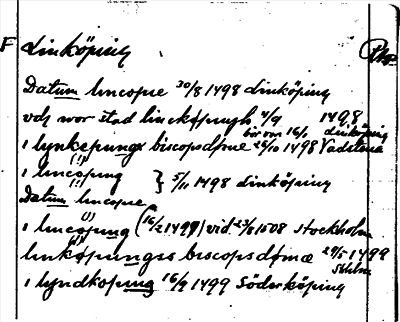 F Linköping
Datum lincopie 30/8 1498 Linköping
vdj vor stad linckøpungh 4/9 1498
Linköping
i lynkepungx biscopsdøme 26/10 1498 Vadstena
(!)
i lincopung } 5/11 1498 Linköping
(!)
Datum lincopie
(!)
i lincopung (16/2 1499) vid 23/8 1508 Stockholm
linkøpungss biscopsdømæ 29/5 1499
Sthlm
i lyndkopung 16/9 1499 Söderköping